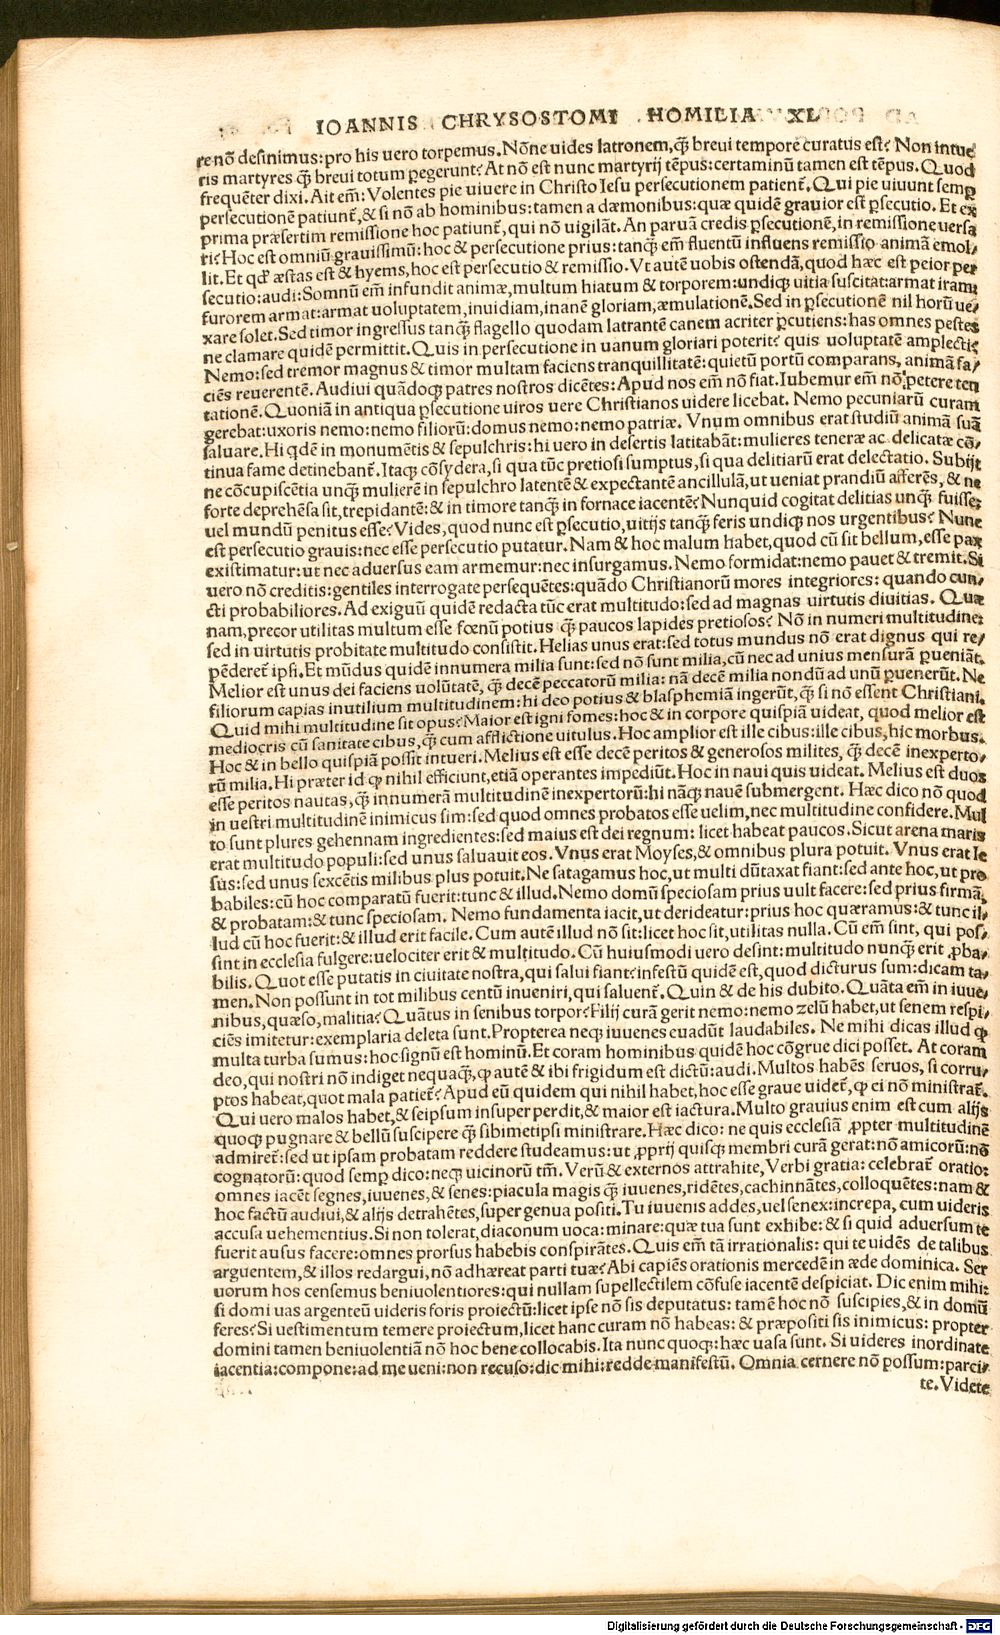 IOANNIS CHRYSOSTOMI HOMILIA XL
re nõ desinimus: pro his uero torpemus. Nõne uides latronem, q̃ breui tempore curatus est? Non intue
ris martyres q̃ breui totum ꝑegerunt? At nõ est nunc martyrij tẽpus: certaminũ tamen est tẽpus. Quod
frequẽter dixi. Ait em̃: Volentes pie uiuere in Christo Iesu persecutionem patient̃. Qui pie uiuunt semꝑ
persecutionẽ patiunt̃, & si nõ ab hominibus: tamen a dæmonibus: quæ quidẽ grauior est ꝑsecutio. Et ex
prima præsertim remissione hoc patiunt̃, qui nõ uigilãt. An paruã credis ꝑsecutionẽ, in remissione uersa
ri? Hoc est omniũ grauissimũ: hoc & persecutione prius: tanq̃ em̃ fluentũ influens remissio animã emol/
lit. Et qd̃ æstas est & hyems, hoc est persecutio & remissio. Vt autẽ uobis ostendã, quod hæc est peior per
secutio: audi: Somnũ em̃ infundit animæ, multum hiatum & torporem: undiqꝫ uitia suscitat: armat iram:
furorem armat: armat uoluptatem, inuidiam, inanẽ gloriam, æmulationẽ. Sed in ꝑsecutionẽ nil horũ ue/
xare solet. Sed timor ingressus tanq̃ flagello quodam latrantẽ canem acriter ꝑcutiens: has omnes pestes
ne clamare quidẽ permittit. Quis in persecutione in uanum gloriari poterit? quis uoluptatẽ amplecti?
Nemo: sed tremor magnus & timor multam faciens tranquillitatẽ: quietũ portũ comparans, animã fa/
ciẽs reuerentẽ. Audiui quãdoqꝫ patres nostros dicẽtes: Apud nos em̃ nõ fiat. Iubemur em̃ nõ petere ten
tationẽ. Quoniã in antiqua ꝑsecutione uiros uere Christianos uidere licebat. Nemo pecuniarũ curam
gerebat: uxoris nemo: nemo filiorũ: domus nemo: nemo patriæ. Vnum omnibus erat studiũ animã suã
saluare. Hi qdẽ in monumẽtis & sepulchris: hi uero in desertis latitabãt: mulieres teneræ ac delicatæ cõ/
tinua fame detinebant̃. Itaqꝫ cõsydera, si qua tũc pretiosi sumptus, si qua delitiarũ erat delectatio. Subijt
ne cõcupiscẽtia unq̃ mulierẽ in sepulchro latentẽ & expectantẽ ancillulã, ut ueniat prandiũ afferẽs, & ne
forte deprehẽsa sit, trepidantẽ: & in timore tanq̃ in fornace iacentẽ? Nunquid cogitat delitias unq̃ fuisse:
uel mundũ penitus esse? Vides, quod nunc est ꝑsecutio, uitijs tanq̃ feris undiqꝫ nos urgentibus? Nunc
est persecutio grauis: nec esse persecutio putatur. Nam & hoc malum habet, quod cũ sit bellum, esse pax
existimatur: ut nec aduersus eam armemur: nec insurgamus. Nemo formidat: nemo pauet & tremit. Si
uero nõ creditis: gentiles interrogate persequẽtes: quãdo Christianorũ mores integriores: quando cun/
cti probabiliores. Ad exiguũ quidẽ redacta tũc erat multitudo: sed ad magnas uirtutis diuitias. Quæ
nam, precor utilitas multum esse fœnũ potius q̃ paucos lapides pretiosos? Nõ in numeri multitudine:
sed in uirtutis probitate multitudo consistit. Helias unus erat: sed totus mundus nõ erat dignus qui re/
pẽderet̃ ipsi. Et mũdus quidẽ innumera milia sunt: sed nõ sunt milia, cũ nec ad unius mensurã ꝑueniãt.
Melior est unus dei faciens uolũtatẽ, q̃ decẽ peccatorũ milia: nã decẽ milia nondũ ad unũ ꝑuenerũt. Ne
filiorum capias inutilium multitudinem: hi deo potius & blasphemiã ingerũt, q̃ si nõ essent Christiani.
Quid mihi multitudine sit opus? Maior est igni fomes: hoc & in corpore quispiã uideat, quod melior est
mediocris cũ sanitate cibus, q̃ cum afflictione uitulus. Hoc amplior est ille cibus: ille cibus, hic morbus.
Hoc & in bello quispiã possit intueri. Melius est esse decẽ peritos & generosos milites, q̃ decẽ inexperto/
rũ milia. Hi præter id qꝫ nihil efficiunt, etiã operantes impediũt. Hoc in naui quis uideat. Melius est duos
esse peritos nautas, q̃ innumerã multitudinẽ inexpertorũ: hi nãqꝫ nauẽ submergent. Hæc dico nõ quod
in uestri multitudinẽ inimicus sim: sed quod omnes probatos esse uelim, nec multitudine confidere. Mul
to sunt plures gehennam ingredientes: sed maius est dei regnum: licet habeat paucos. Sicut arena maris
erat multitudo populi: sed unus saluauit eos. Vnus erat Moyses, & omnibus plura potuit. Vnus erat Ie
sus: sed unus sexcẽtis milibus plus potuit. Ne satagamus hoc, ut multi dũtaxat fiant: sed ante hoc, ut pro
babiles: cũ hoc comparatũ fuerit: tunc & illud. Nemo domũ speciosam prius uult facere: sed prius firmã,
& probatam: & tunc speciosam. Nemo fundamenta iacit, ut derideatur: prius hoc quæramus: & tunc il/
lud cũ hoc fuerit: & illud erit facile. Cum autẽ illud nõ sit: licet hoc sit, utilitas nulla. Cũ em̃ sint, qui pos/
sint in ecclesia fulgere: uelociter erit & multitudo. Cũ huiusmodi uero desint: multitudo nunq̃ erit ꝓba/
bilis. Quot esse putatis in ciuitate nostra, qui salui fiant? infestũ quidẽ est, quod dicturus sum: dicam ta/
men. Non possunt in tot milibus centũ inueniri, qui saluent̃. Quin & de his dubito. Quãta em̃ in iuue/
nibus, quæso, malitia? Quãtus in senibus torpor? Filij curã gerit nemo: nemo zelũ habet, ut senem respi/
ciẽs imitetur: exemplaria deleta sunt. Propterea neqꝫ iuuenes euadũt laudabiles. Ne mihi dicas illud qꝫ
multa turba sumus: hoc signũ est hominũ. Et coram hominibus quidẽ hoc cõgrue dici posset. At coram
deo, qui nostri nõ indiget nequaq̃, qꝫ autẽ & ibi frigidum est dictũ: audi. Multos habẽs seruos, si corru/
ptos habeat, quot mala patiet̃? Apud eũ quidem qui nihil habet, hoc esse graue uidet̃, qꝫ ei nõ ministrat̃.
Qui uero malos habet, & seipsum insuper perdit, & maior est iactura. Multo grauius enim est cum alijs
quoqꝫ pugnare & bellũ suscipere q̃ sibimetipsi ministrare. Hæc dico: ne quis ecclesiã ꝓpter multitudinẽ
admiret̃: sed ut ipsam probatam reddere studeamus: ut ꝓprij quisqꝫ membri curã gerat: nõ amicorũ: nõ
cognatorũ: quod semꝑ dico: neqꝫ uicinorũ tm̃. Verũ & externos attrahite, Verbi gratia: celebrat̃ oratio:
omnes iacẽt segnes, iuuenes, & senes: piacula magis q̃ iuuenes, ridẽtes, cachinnãtes, colloquẽtes: nam &
hoc factũ audiui, & alijs detrahẽtes, super genua positi. Tu iuuenis addes, uel senex: increpa, cum uideris
accusa uehementius. Si non tolerat, diaconum uoca: minare: quæ tua sunt exhibe: & si quid aduersum te
fuerit ausus facere: omnes prorsus habebis conspirãtes. Quis em̃ tã irrationalis: qui te uidẽs de talibus
arguentem, & illos redargui, nõ adhæreat parti tuæ? Abi capiẽs orationis mercedẽ in æde dominica. Ser
uorum hos censemus beniuolentiores: qui nullam supellectilem cõfuse iacentẽ despiciat. Dic enim mihi:
si domi uas argenteũ uideris foris proiectũ: licet ipse nõ sis deputatus: tamẽ hoc nõ suscipies, & in domũ
feres? Si uestimentum temere proiectum, licet hanc curam nõ habeas: & præpositi sis inimicus: propter
domini tamen beniuolentiã nõ hoc bene collocabis. Ita nunc quoqꝫ: hæc uasa sunt. Si uideres inordinate
iacentia: compone: ad me ueni: non recuso: dic mihi: redde manifestũ. Omnia cernere nõ possum: parci/
te. Videte
Digitalisierung gefördert durch die Deutsche Forschungsgemeinschaft - DFG